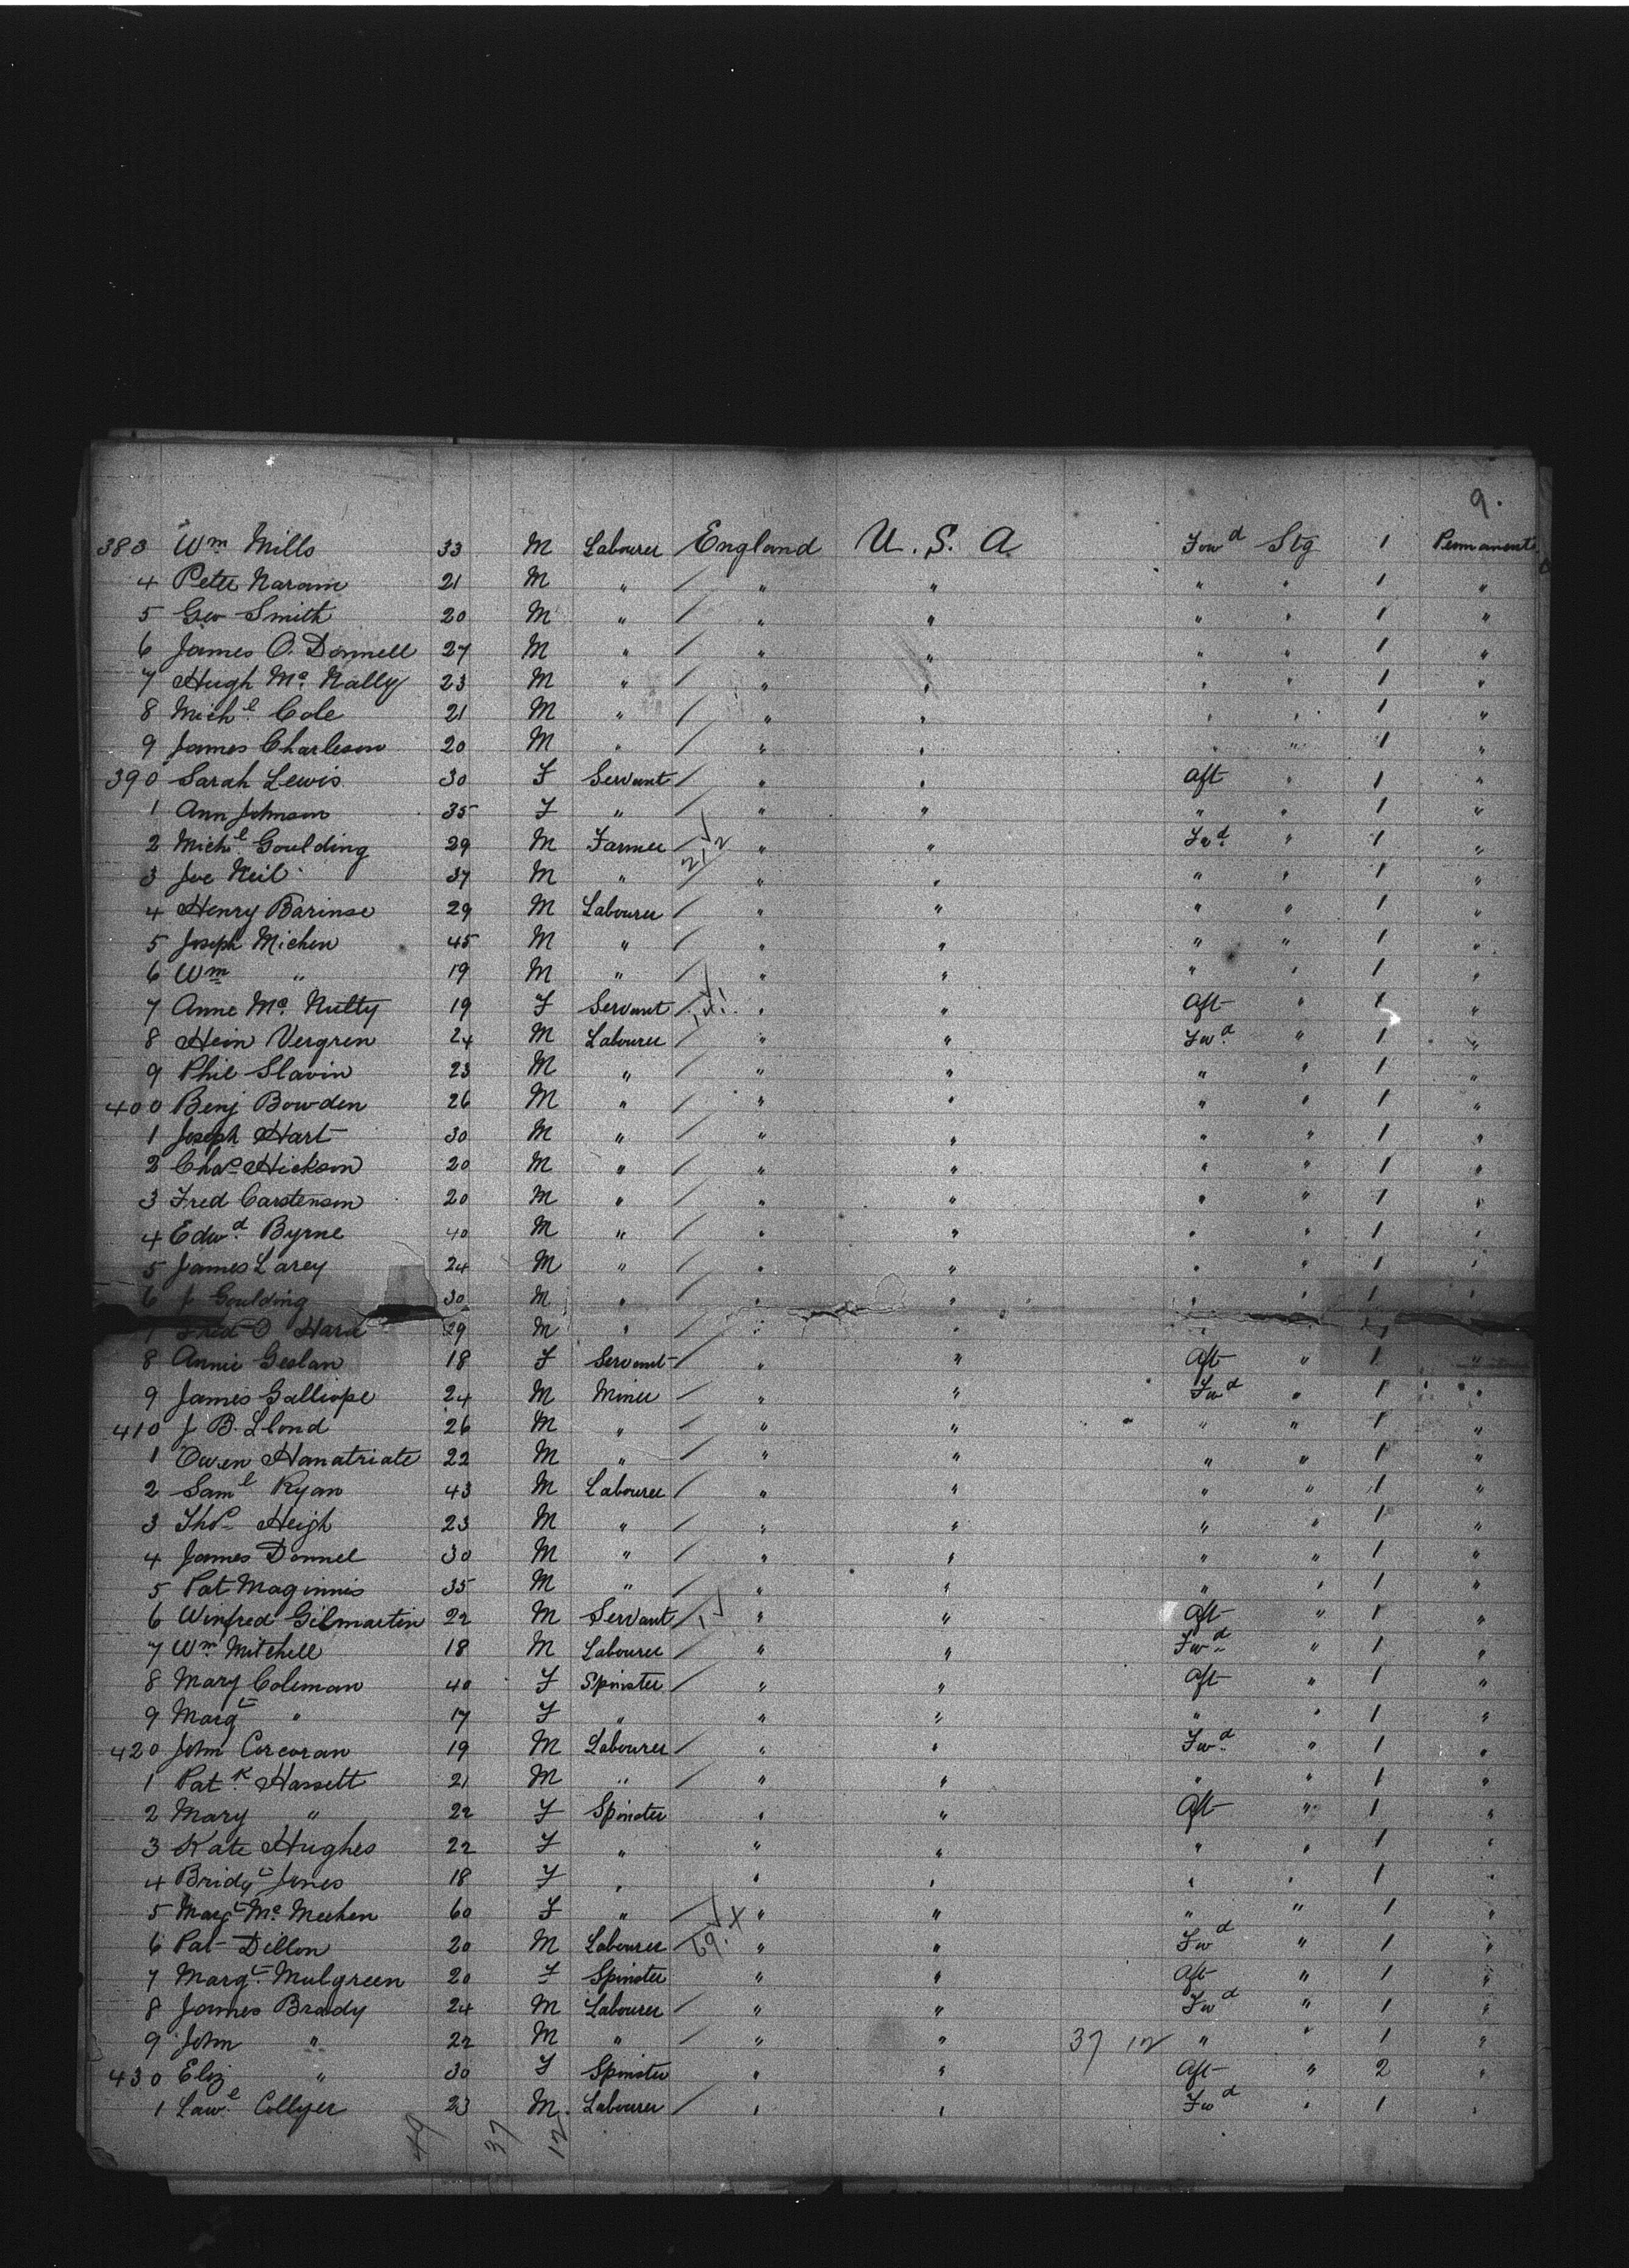 9.
383 Wm Mills 33 M Labourer England U. S. A Fowd Stg 1 Permanent
4 Peter Naram 21 M " / " " " " 1 "
5 Geo Smith 20 M " / " " " " 1 "
6 James O. Donnell 27 M " / " " " " 1 "
7 Hugh Mc Nally 23 M " / " " " " 1 "
8 Michl Cole 21 M " / " " " " 1 "
9 James Charleson 20 M " / " " " " 1 "
390 Sarah Lewis 30 F Servant / " " Aft " 1 "
1 Ann Johnson 35 F " / " " " " 1 "
2 Michl Goulding 29 M Farmer " " Fwd " 1 "
3 Joe Neil 37 M " / " " " " 1 "
4 Henry Barinse 29 M Labourer / " " " " 1 "
5 Joseph Michen 45 M " / " " " " 1 "
6 Wm " 19 M " / " " " " 1 "
7 Anne Mc Nulty 19 F Servant " " Aft " 1 "
8 Hein Vergren 24 M Labourer / " " Fwd " 1 "
9 Phil Slavin 23 M " / " " " " 1 "
400 Benj Bowden 26 M " / " " " " 1 "
1 Joseph Hart 30 M " / " " " " 1 "
2 Chas Hickson 20 M " / " " " " 1 "
3 Fred Carstensen 20 M " / " " " " 1 "
4 Edwd Byrne 40 M " / " " " " 1 "
5 James Larey 24 M " / " " " " 1 "
6 J Goulding 30 M " / " " " " 1 "
7 Fred O Hara 29 M " / " " " " 1 "
8 Annie Geslan 18 F Servant / " " Aft " 1 "
9 James Galliope 24 M Miner / " " Fwd " 1 "
410 J B. Llond 26 M " / " " " " 1 "
1 Owen Hanatriate 22 M " / " " " " 1 "
2 Saml Ryan 43 M Labourer / " " " " 1 "
3 Thos Heigh 23 M " / " " " " 1 "
4 James Donnel 30 M " / " " " " 1 "
5 Pat Maginnis 35 M " / " " " " 1 "
6 Winfred Gilmartin 22 M Servant / " " Aft " 1 "
7 Wm Mitchell 18 M Labourer / " " Fwd " 1 "
8 Mary Coleman 40 F Spinster / " " Aft " 1 "
9 Margt " 17 F " " " " " 1 "
420 John Corcoran 19 M Labourer / " " Fwd " 1 "
1 Patk Hassett 21 M " / " " " " 1 "
2 Mary " 22 F Spinster " " Aft " 1 "
3 Kate Hughes 22 F " " " " " 1 "
4 Bridgt Jones 18 F " " " " " 1 "
5 Margt Mc Meehen 60 F " / " " " " 1 "
6 Pat Dillon 20 M Labourer / " " Fwd " 1 "
7 Margt Mulgreen 20 F Spinster " " Aft " 1 "
8 James Brady 24 M Labourer / " " Fwd " 1 "
9 John " 22 M " / " " 37 12 " " 1 "
430 Eliz " 30 F Spinster " " Aft " 2 "
1 Lawe Collyer 23 M. Labourer / " " Fwd " 1 "
49 37 12